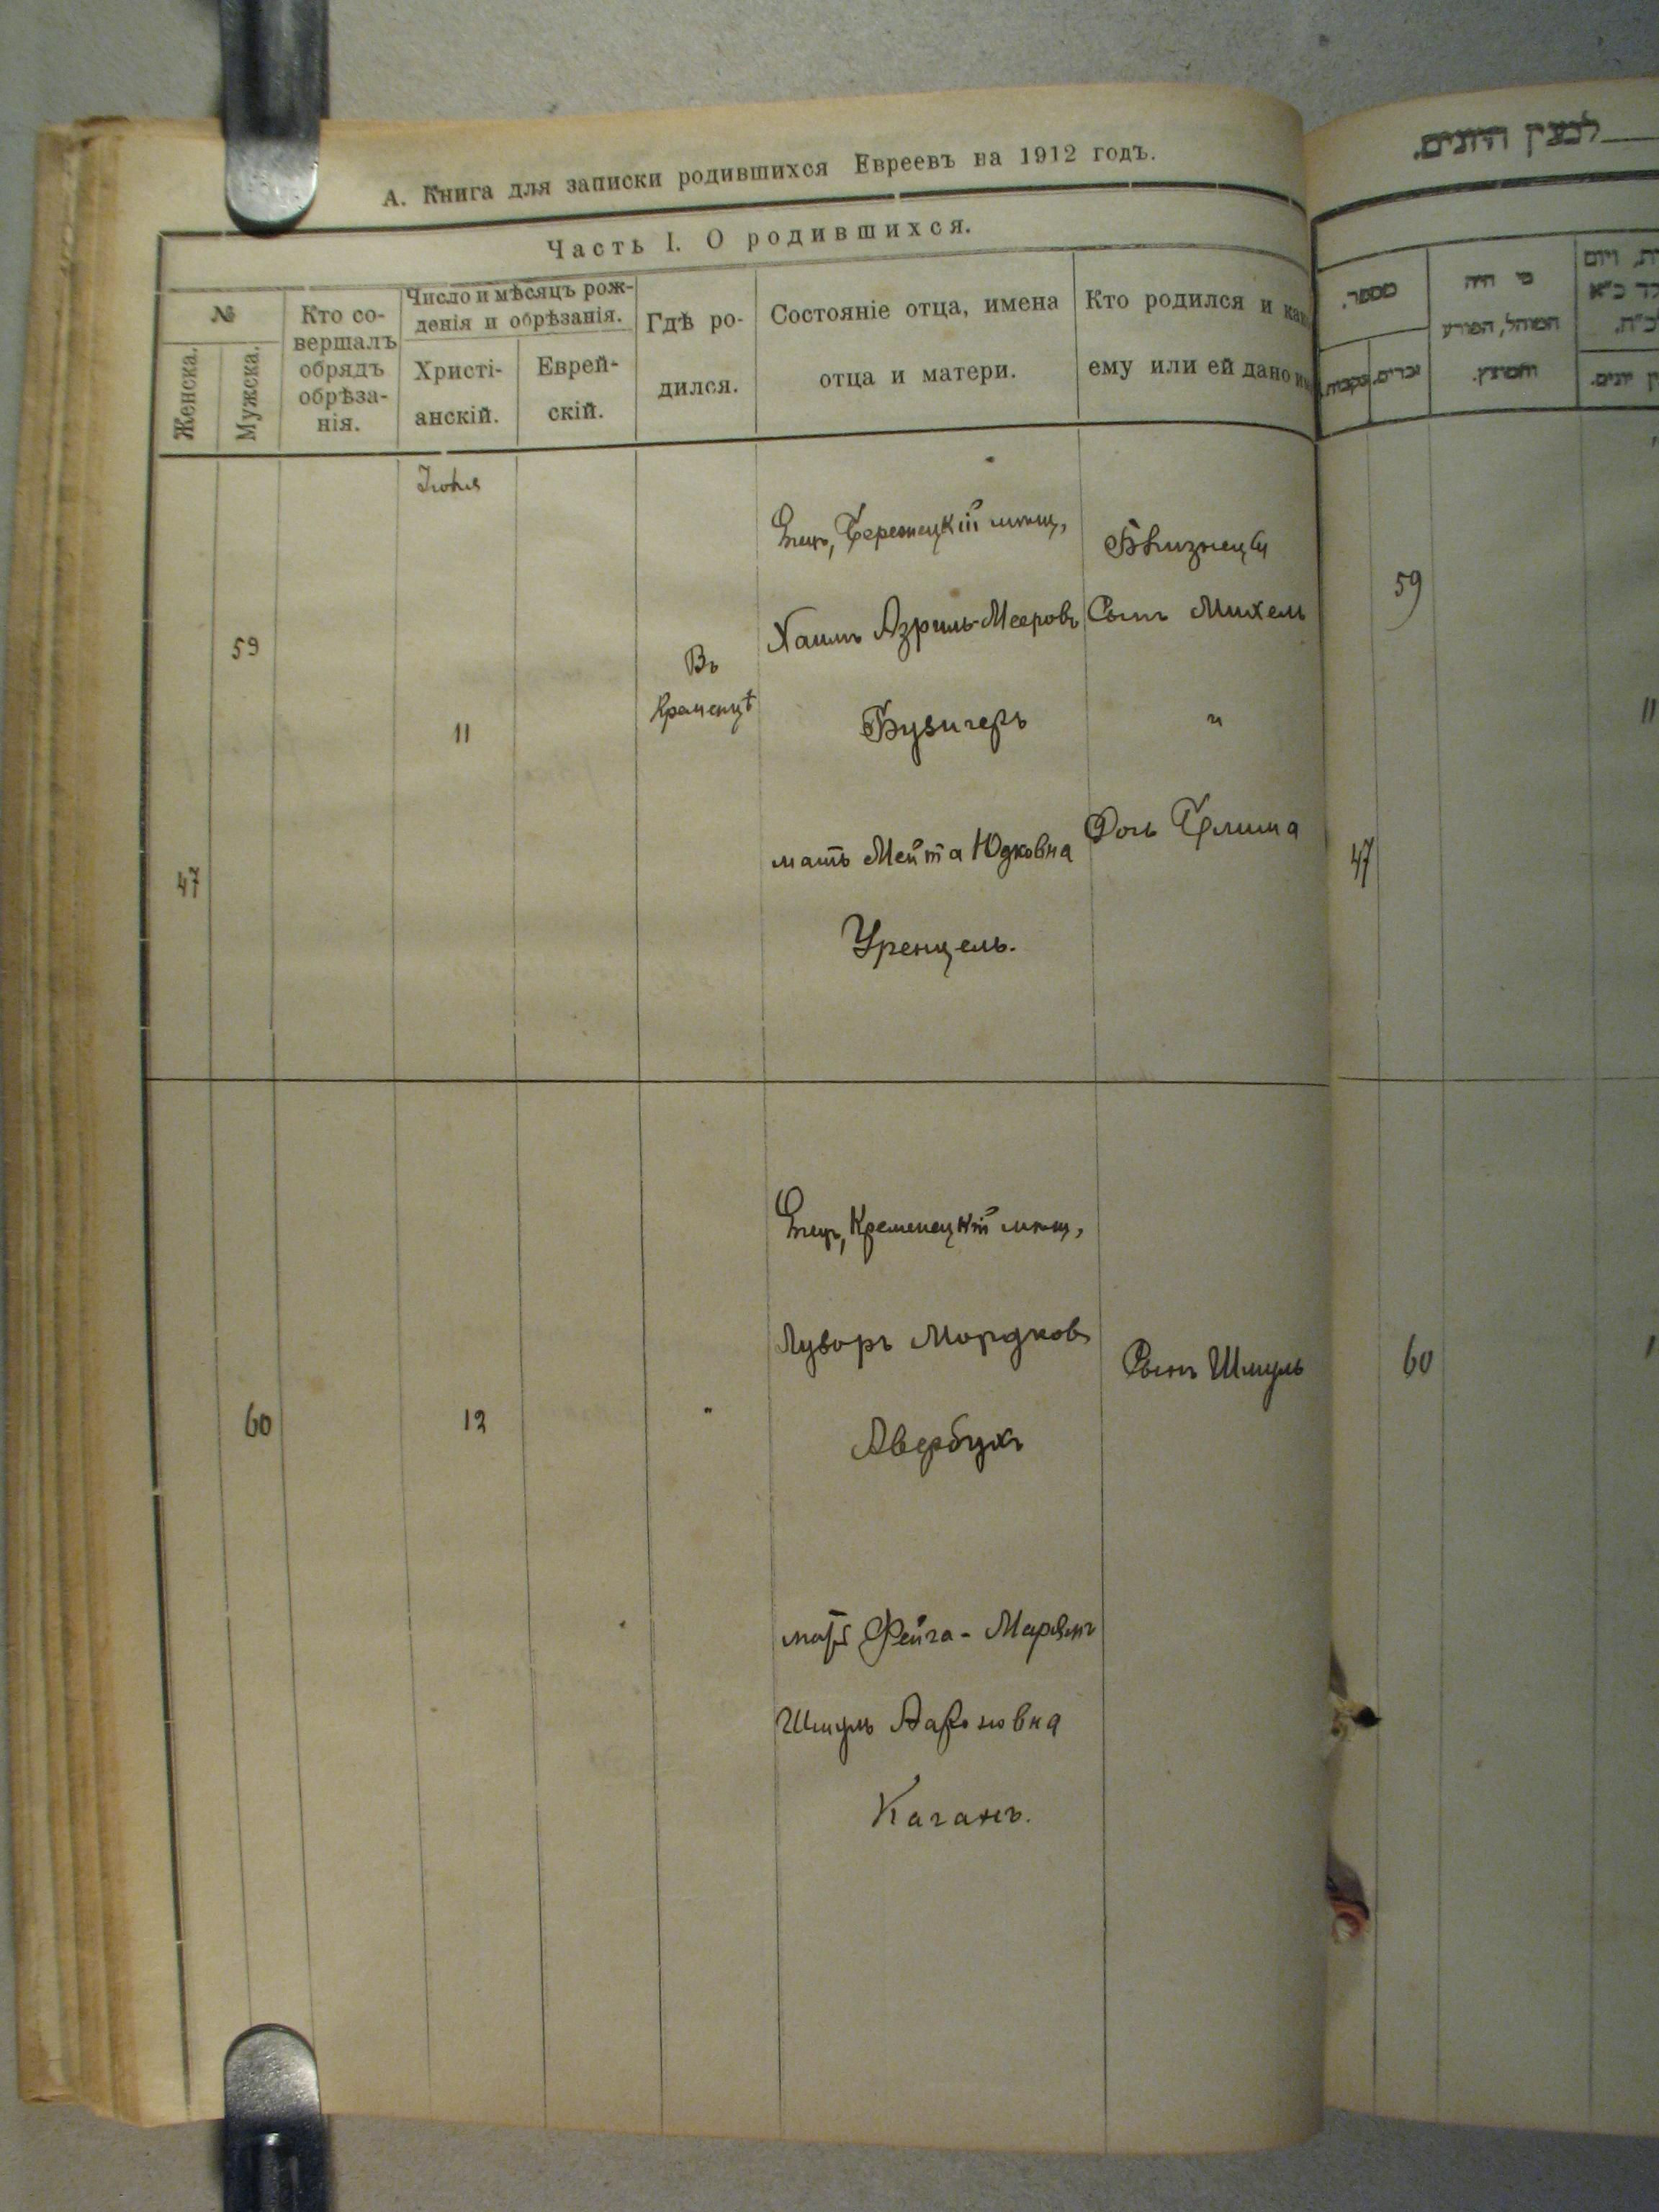 А. Книга для записки родившихся Евреевъ на 1912 годъ.
Часть I. О родившихся.
№
Женска.
Мужска.
Кто со-
вершалъ
обрядъ
обрѣза-
нія.
Число и мѣсяцъ рож-
денія и обрѣзанія.
Христі-
анскій.
Еврей-
скій.
Гдѣ ро-
дился.
Состояніе отца, имена
отца и матери.
Кто родился и как
ему или ей дано
59
47
11
Въ
Кременцѣ
мѣщ,
Хаимъ Азриль-Мееровъ
Бузигеръ
мать Мейта Юдковна
Уренцель.
Близнецы
Сынъ Михель
и
Дочь
60
12
"
Отецъ, Кременецкій мѣщ,
Лузоръ Мордков
Авербухъ
мать Фейга-Марямъ
Шмуль Аароновна
Каганъ.
Сынъ Шмуль
לבעין היונים.
מספר.
זכרים.
נקבות.
מי היה
המוהל, הפורע
והמוצץ.
59
47
60
11